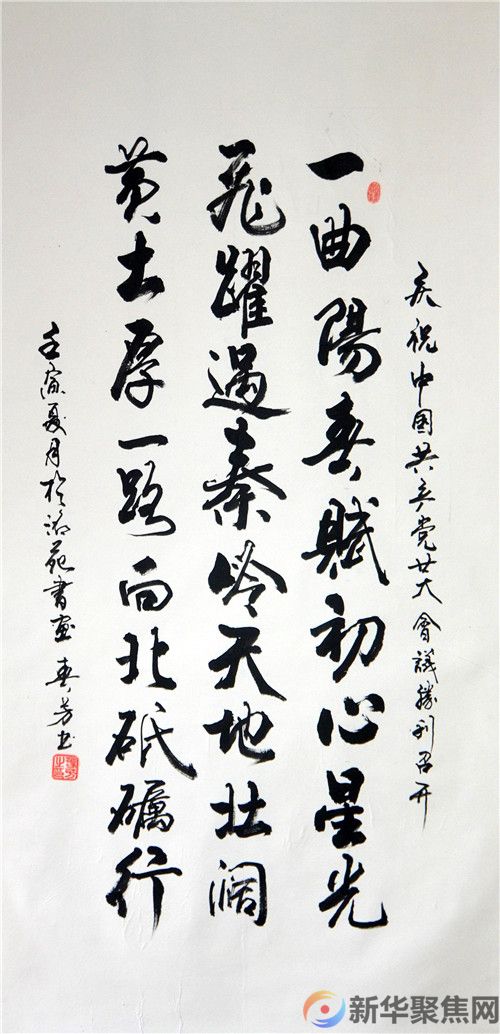 庆祝中国共产党廿大會議勝利召开
一曲陽春賦初心星光
飛躍過秦岭天地壮阔
黄土厚一路向北砥礪行
壬寅夏月於苑書画 春芳书
新华聚焦网